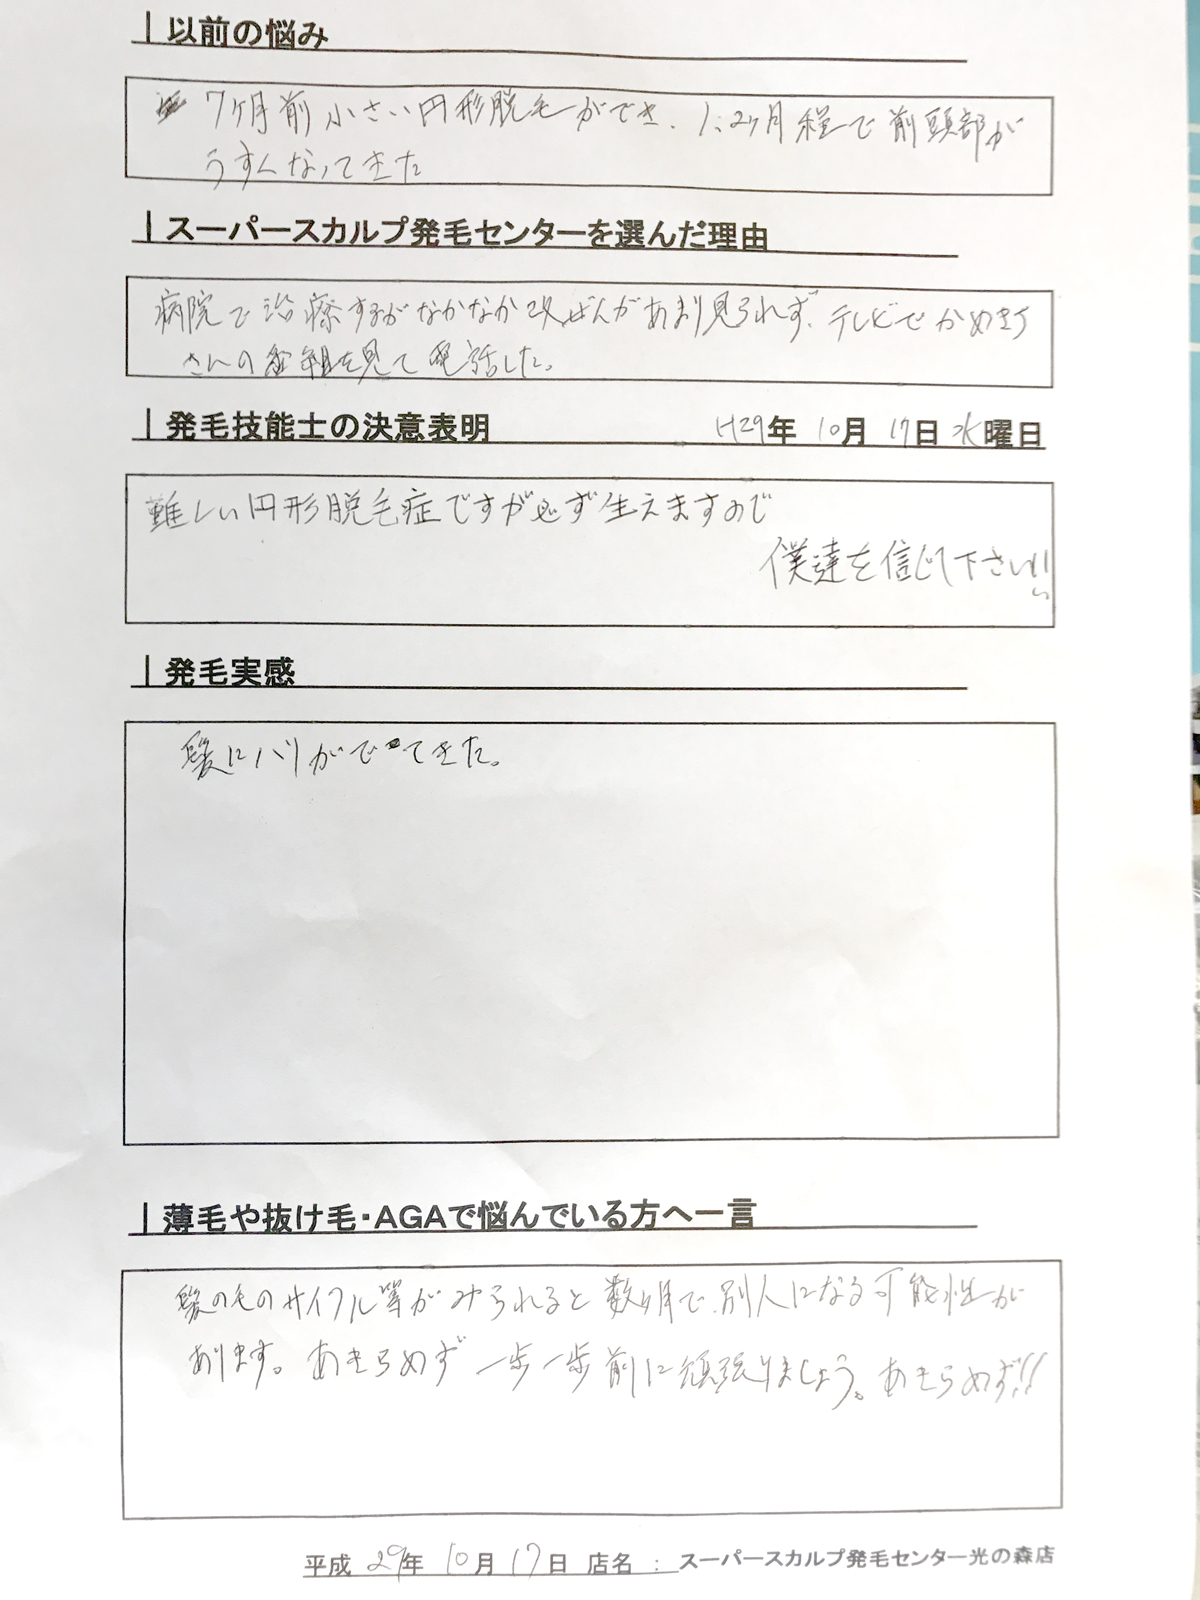 以前の悩み
7ヶ月前小さい円形脱毛ができ、1、2ヶ月程で前頭部が
うすくなってきた
スーパースカルプ発毛センターを選んだ理由
病院で治療するがなかなか改ぜんがあまり見られず、テレビでかめきち
さんの番組を見て電話した。
発毛技能士の決意表明 H29年 10月 17日 水曜日
難しい円形脱毛症ですが必ず生えますので
僕達を信じて下さい!!
発毛実感
髪にハリがでてきた。
薄毛や抜け毛・AGAで悩んでいる方へ一言
髪の毛のサイクル等がみられると数ヶ月で別人になる可能性が
あります。あきらめず一歩一歩前に頑張りましょう。あきらめず!!
平成 29年 10月 17日 店名 : スーパースカルプ発毛センター光の森店